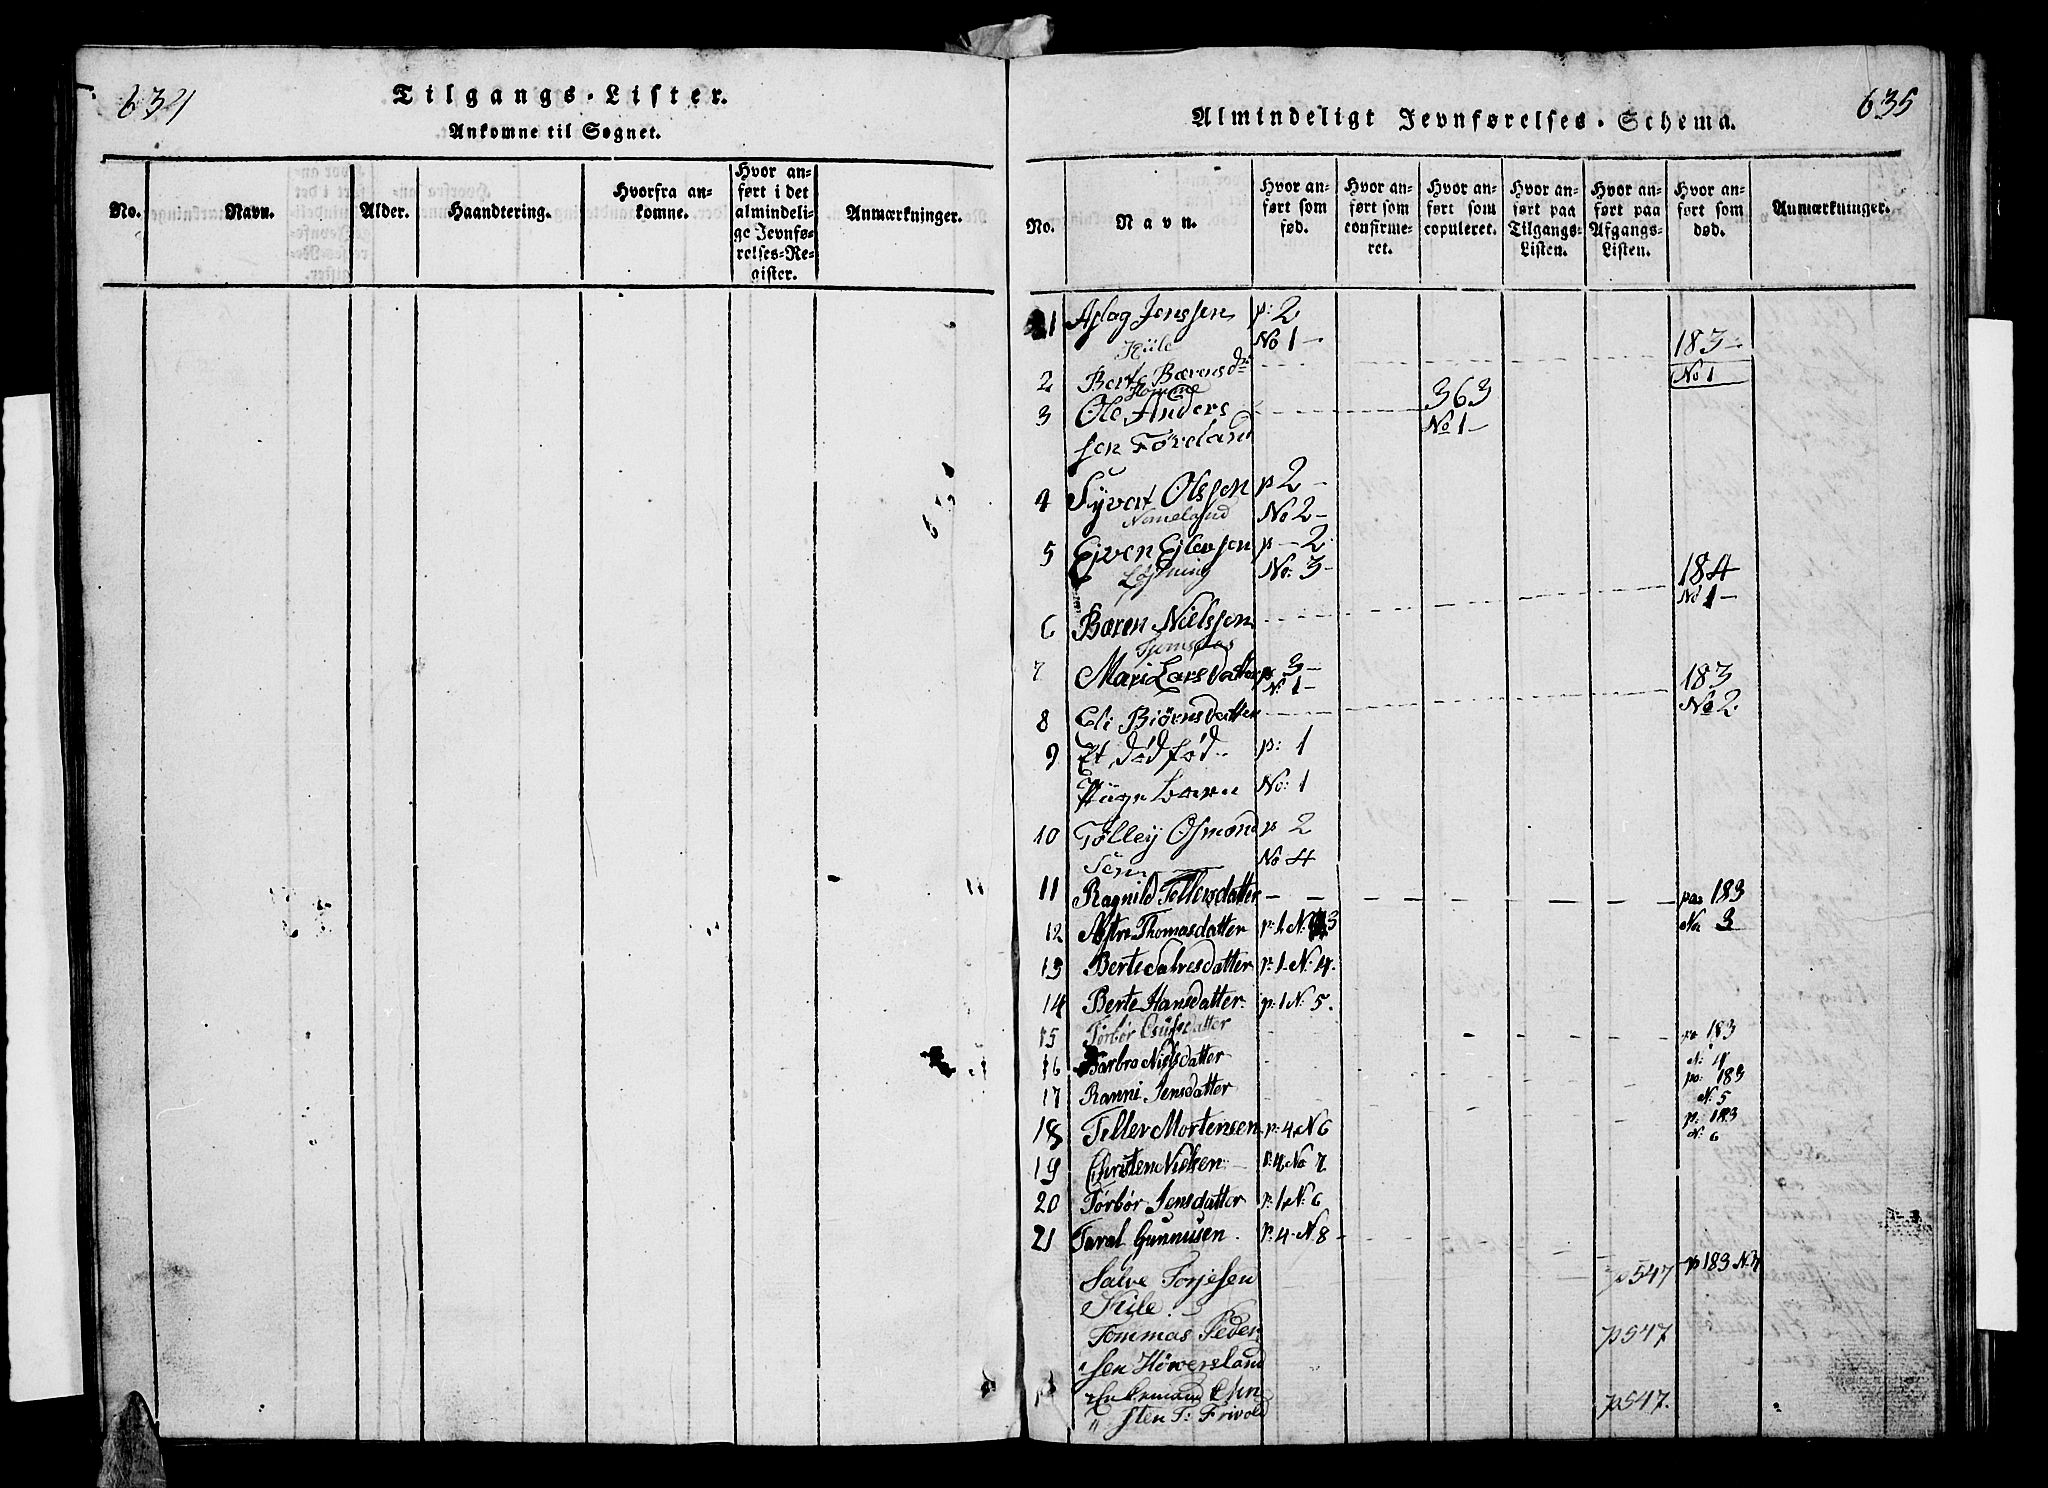 634
Tilgangs-Lister.
Ankomne til Sognet.
No.
Navn.
Alder.
Haandtering.
Hvorfra an-
komne.
Hvor an-
ført i det
almindeli-
ge Jevnfø-
relses-Re-
gister.
Anmærkninger.
635
Almindeligt Jevnførelses-Schema.
No.
Navn.
Hvor an-
ført som
fød.
Hvor an-
ført som
confirme-
ret.
Hvor an-
ført som
copuleret.
Hvor an-
ført paa
Tilgangs-
Listen.
Hvor an-
ført paa
Afgangs-
Listen.
Hvor an-
ført som
død.
Anmærkninger.
1 Aslag Jenssen p: 2
No 1 183
2 Berte Bærensd No 1
Homme
3 Ole Anders 363
sen Føreland No 1
4 Syvert Olssen p 2
Nomeland No 2
5 Ejven Ejlevsen p 2
No: 3 184
No 1
6 Bæren Nielssen
7 Mari Lars Datter p 3
No 1 183
8 Eli Biörnsdatter No 2
9 Et dödfød p: 1
No: 1
10 Tolley Osmond p 2
Sen No 4
11 Ragnild Tellersdatter pa 183
12 Astri Thomasdatter p: 1 N. 3 No 3
13 Berte Salvesdatter p: 1 N. 4.
14 Berte Hansdatter p: 1 N: 5.
15 Torbør datter pa 183
N: 4
16 Barbro Nielsdatter po: 183
17 Ranni Jensdatter N: 5
18 Teller Mortensen p: 4 N 6 p: 183
N: 6
19 Christen Nielsen p: 4 No 7
20 Torbør Jensdatter p: 1 N: 6
21 Taral Gunnusen. p: 4 N 8
Salve Torjesen p 547 p 183 N 7
Kile
Tommas Peder p 547
sen Höversland
Enkemand Chri p 547.
sten T: Frivold